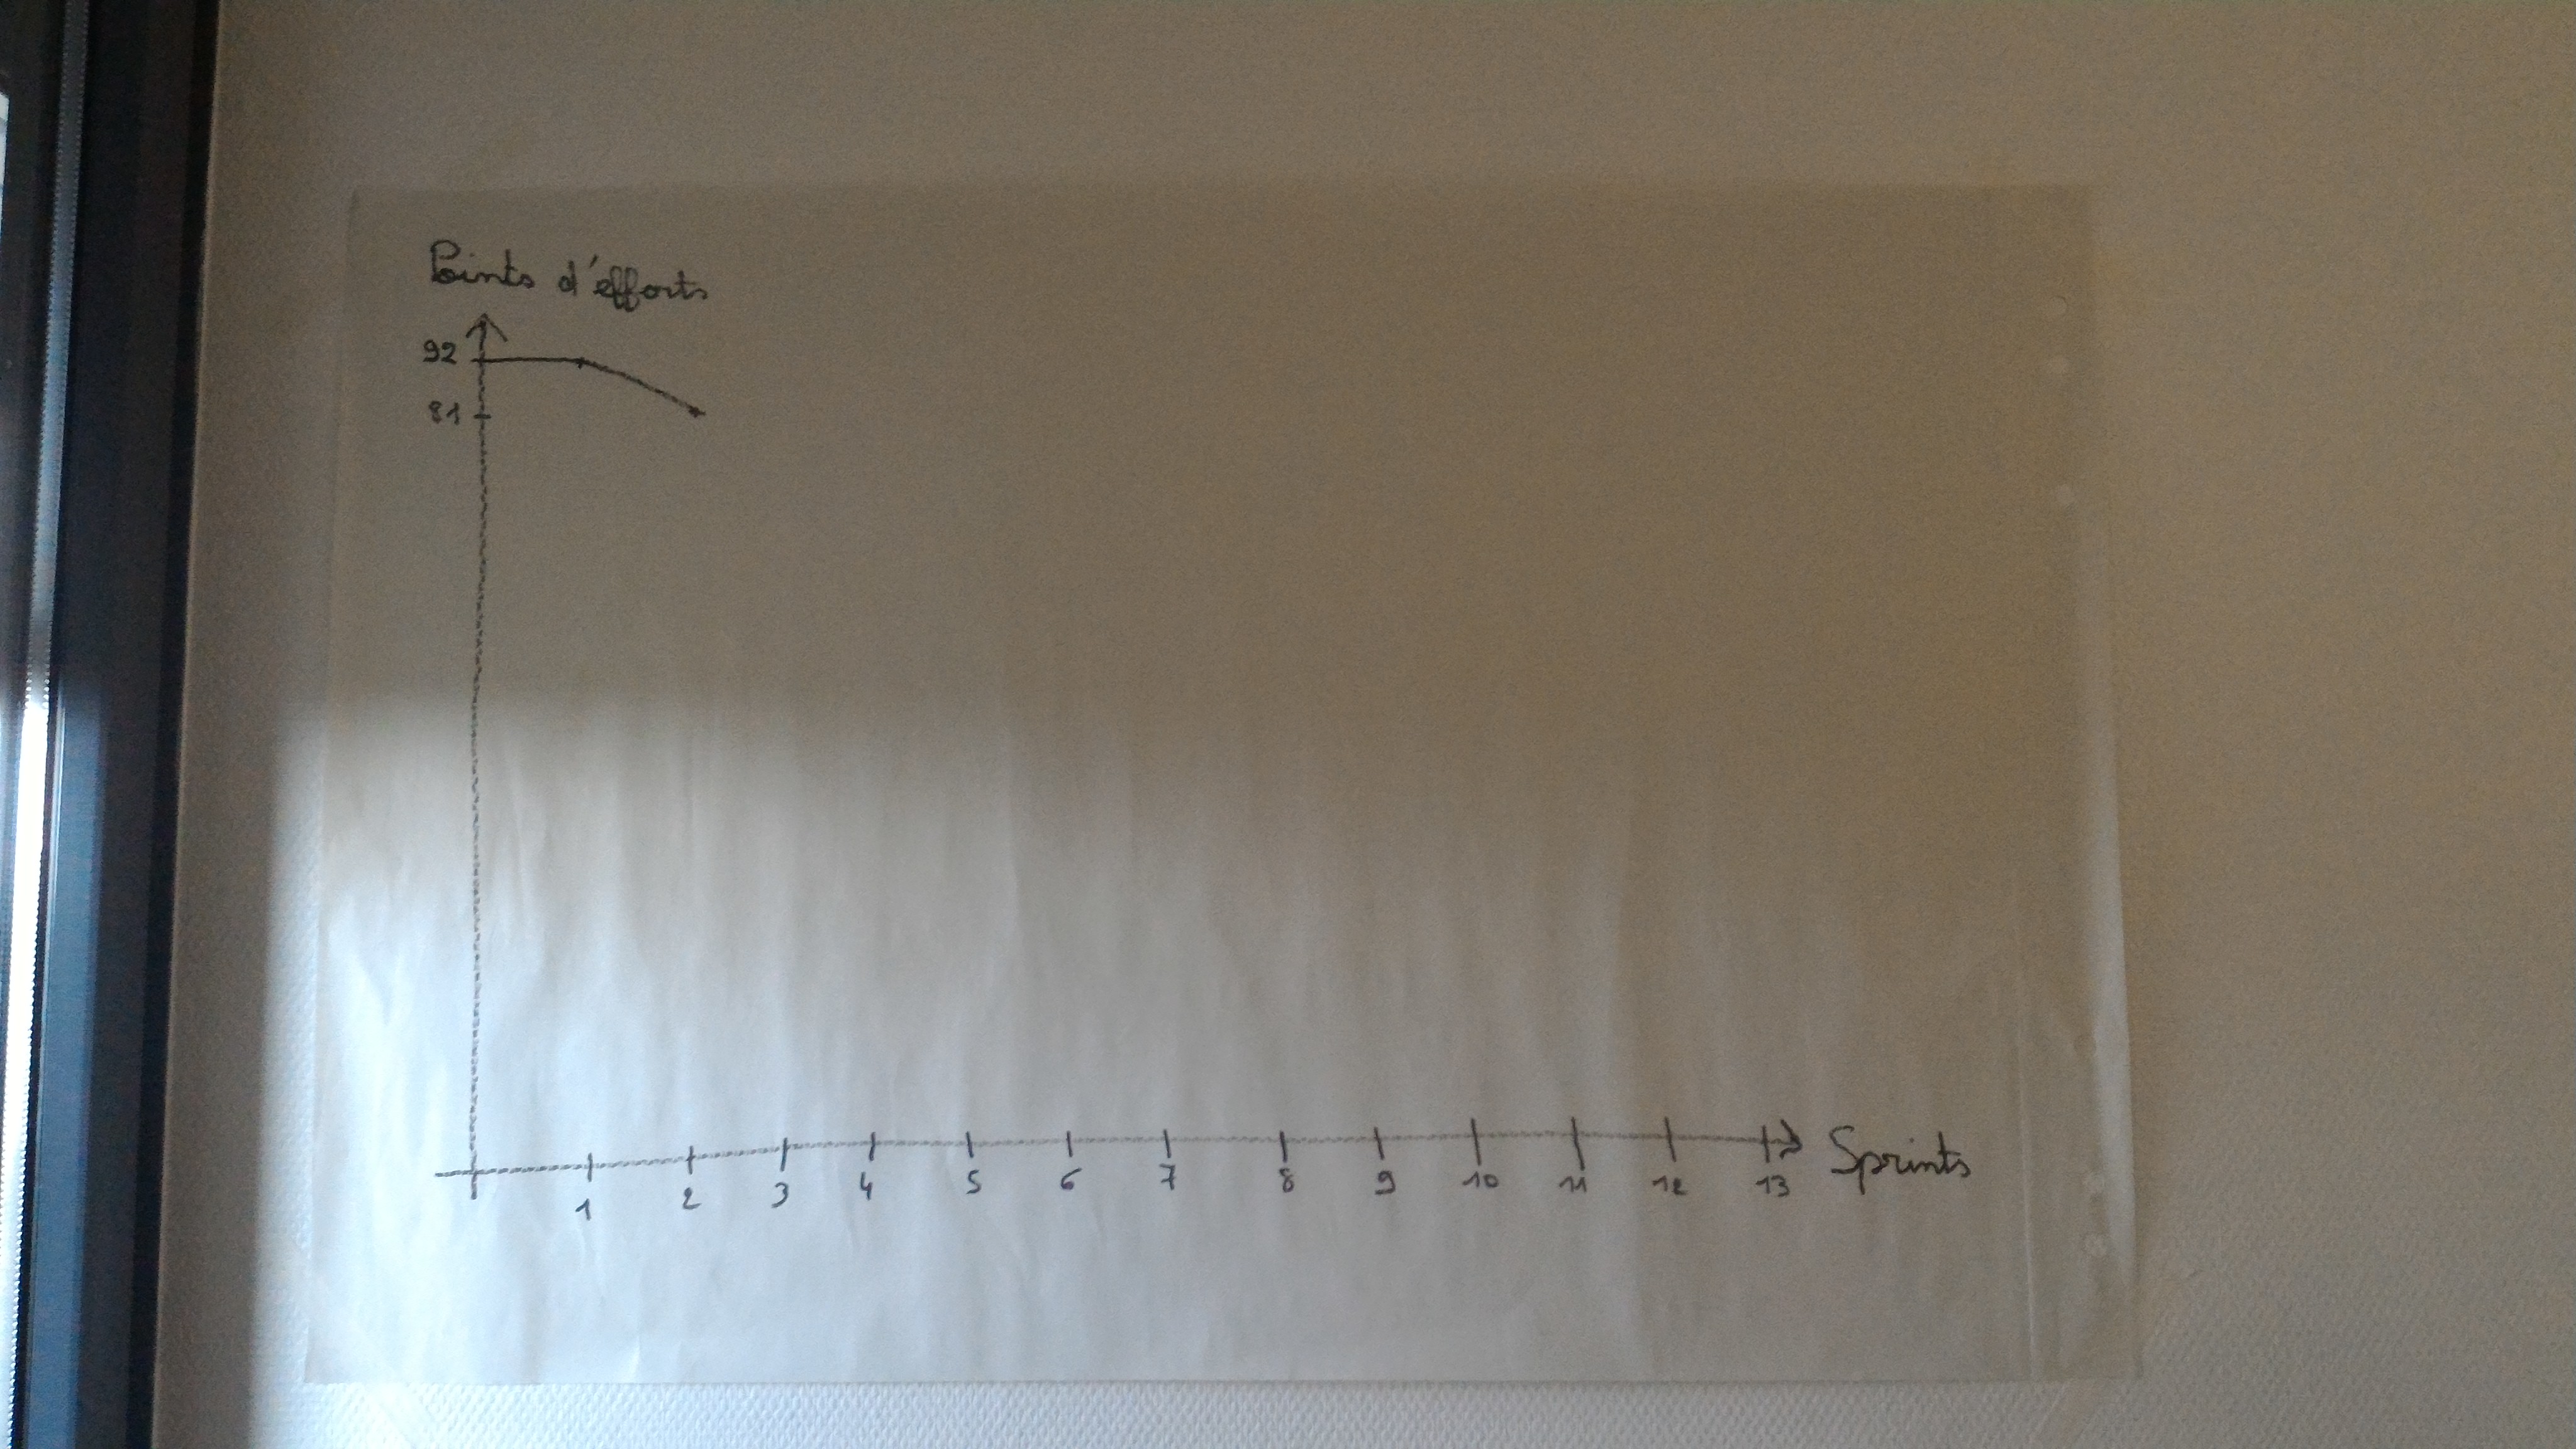 Points d'efforts
92
81
1 2 3 4 5 6 7 8 9 10 11 12 13 Sprints